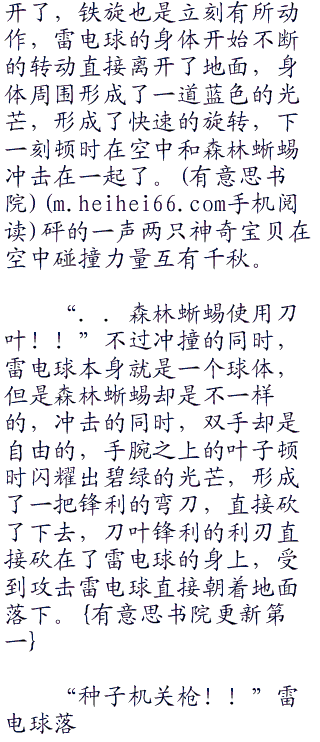 开了，铁旋也是立刻有所动
作，雷电球的身体开始不断
的转动直接离开了地面，身
体周围形成了一道蓝色的光
芒，形成了快速的旋转，下
一刻顿时在空中和森林蜥蜴
冲击在一起了。(有意思书
院)(m.heihei66.com手机阅
读)砰的一声两只神奇宝贝在
空中碰撞力量互有千秋。
“．．森林蜥蜴使用刀
叶！！”不过冲撞的同时，
雷电球本身就是一个球体，
但是森林蜥蜴却是不一样
的，冲击的同时，双手却是
自由的，手腕之上的叶子顿
时闪耀出碧绿的光芒，形成
了一把锋利的弯刀，直接砍
了下去，刀叶锋利的利刃直
接砍在了雷电球的身上，受
到攻击雷电球直接朝着地面
落下。{有意思书院更新第
一}
“种子机关枪！！”雷
电球落